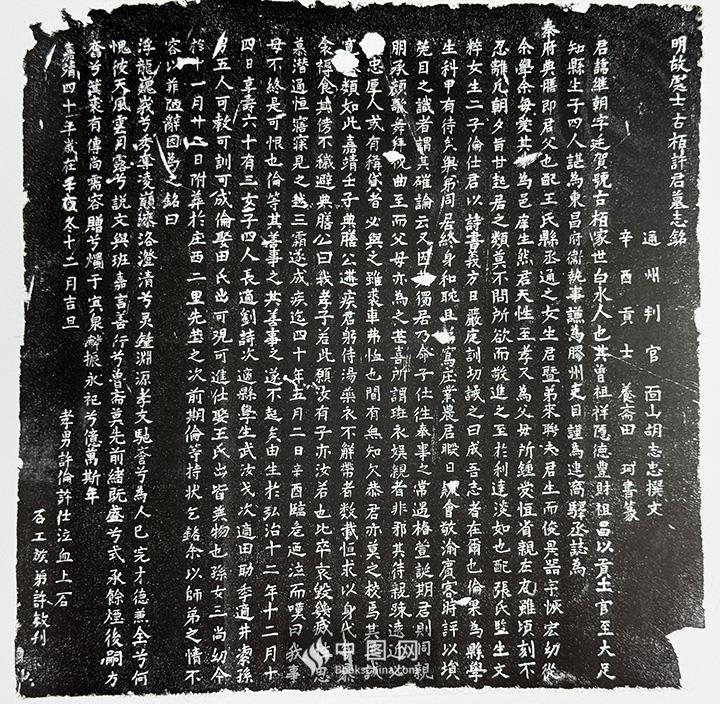 明故處士古栢許君墓志銘
通州判官 面山胡志忠撰文
辛酉貢士 養齋田 珂書篆
君諱繼朝字廷賀號古栢家世白水人也其曾祖祥隱德豊財祖昌以貢士官至大足
知縣生子四人諶為東昌府衛執事讌為膠州吏目謹為連窩驛丞誌為
秦府典膳即君父也配王氏縣丞通之女生君暨弟來聘夫君生而俊異器宇恢宏幼從
余學余每愛其為邑庠生然君天性至孝又為父母所鍾愛恒省親左右雖頃刻不
忍離凡朝夕旨甘起居之類莫不問所欲而敬進之至於利達淡如也配張氏監生文
粹女生二子倫仕君以詩書義方日嚴庭訓初誡之曰成吾志者在爾也倫果為縣學
生科甲有待矣與弟同居終身和耽且篤産業農君暇日會敬洽賓客時評以塤
篪目之識者謂其確論云又因獨居乃命子仕往奉事之常過格壹誕期君則同親
朋承顏歡舞拜祝曲至而父母亦為之甚喜所謂班衣娛親者非邪其待親踈遠近
忠厚人或有稱貸者必與之雖裘車弗恤也間有無知欠恭君亦莫之校焉其
類如此嘉靖壬子典膳公遘疾君躬侍湯藥衣不解帶者數載恒求以身代
余得食械傍不徹避典膳公曰我孝子若此願汝有子亦汝若也比卒哀毀幾滅思
慕潛通恒寤寐見之越三霜遂成疾迄四十年五月二日辛酉臨危泣而嘆曰我事
母不終是可恨也倫等其善事之其善事之遂不起矣由生於弘治十二年十二月十
四日享壽六十有三女子四人長適劉詩次適縣學生武汝戈次適田助季適井索孫
男五人可教可訓可成倫娶田氏出可現可進仕娶王氏出皆美物也孫女三尚幼今
於十一月十二日附葬於庄西二里先塋之次前期倫等持狀乞銘余以師弟之情不
容以菲陋辭因為之銘曰
浮龍羅峩兮秀奪凌巔漆洛澄清兮灵鍾淵源孝文奮兮為人已完才德兼全兮何
愧彼天風雲月露兮説文與班嘉言善行兮曾莫先前緒既盛兮式承餘煙後嗣方
奮兮箕裘有傳尚需容贈兮燭于宜泉麟振永祀兮億萬斯年
嘉靖四十年歲在辛酉冬十二月吉旦
孝男許倫許仕泣血上石
石工族弟許敖刊
中图网
BooksChina.com